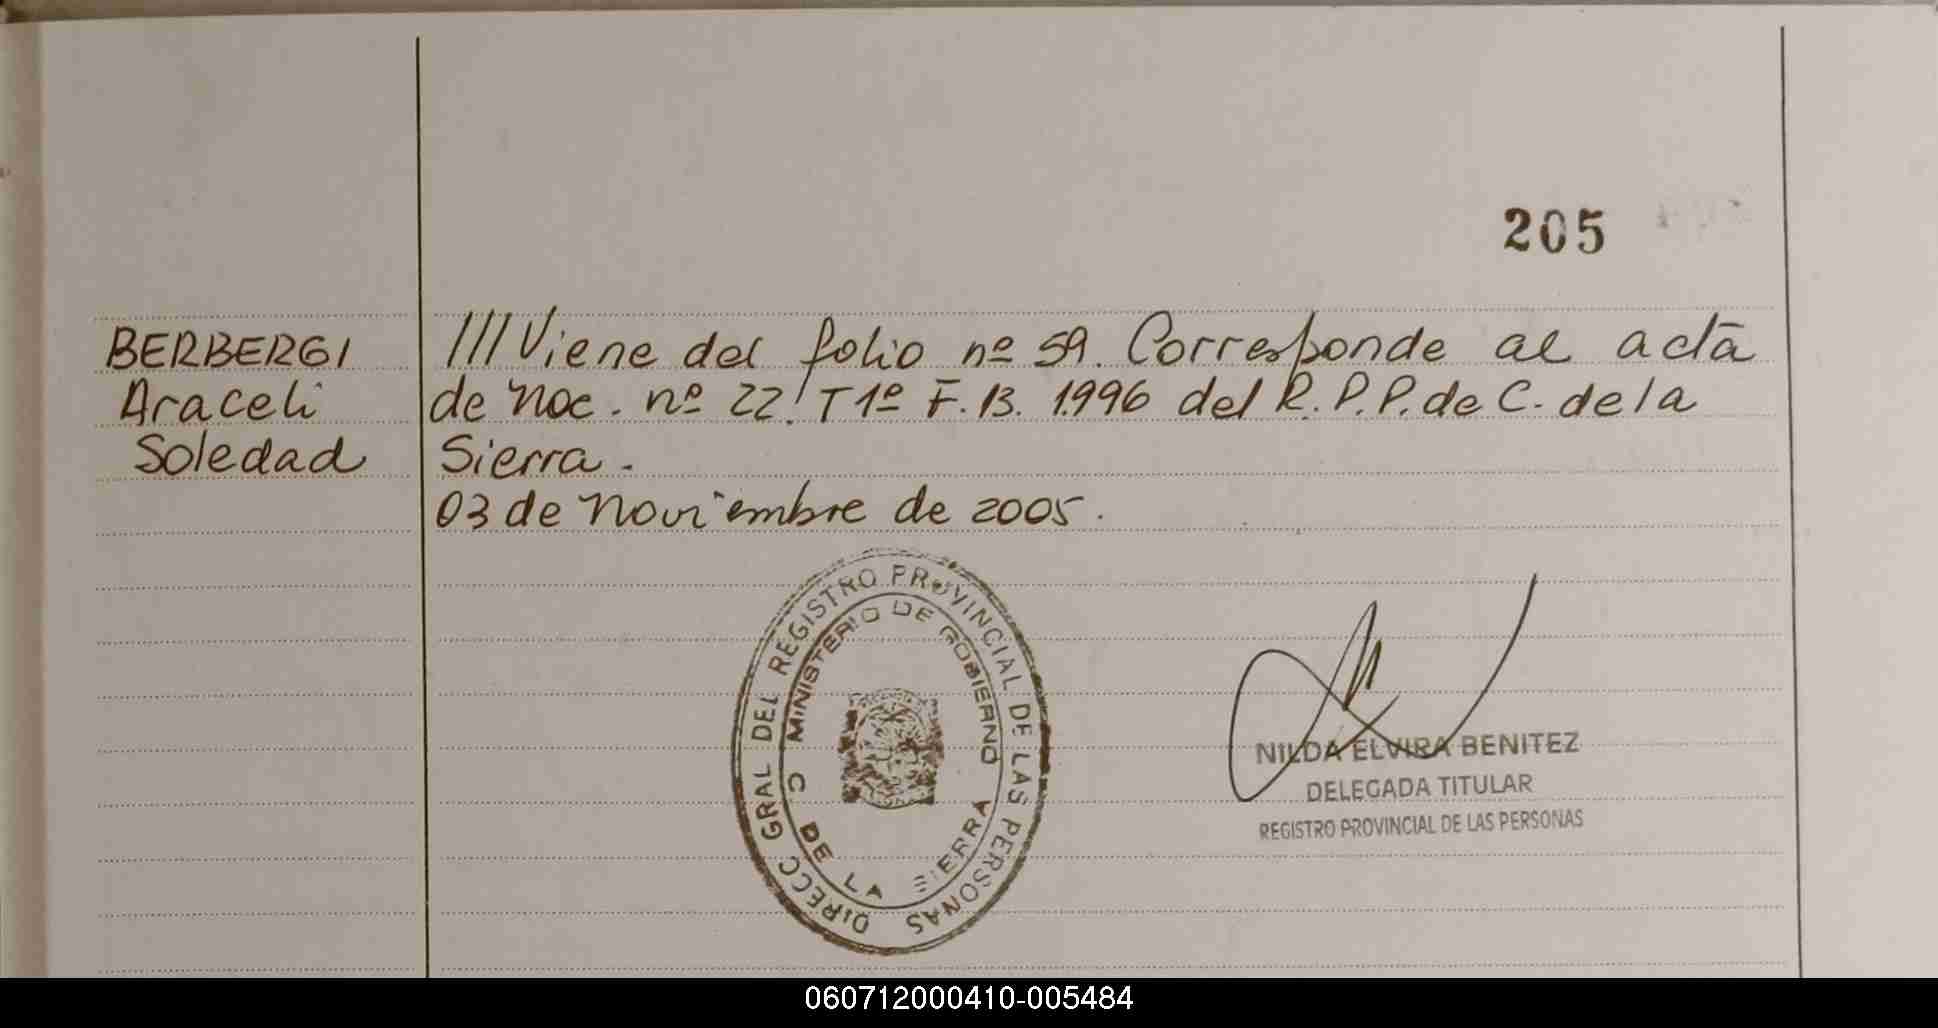 205
BERBERGI
Araceli
Soledad
///Viene del folio nº 59. Corresponde al acta
de Nac. nº 22. T 1º F. 13. 1996 del R.P.P. de C. de la
Sierra.
03 de Noviembre de 2005.
DIRECC GRAL DEL REGISTRO PROVINCIAL DE LAS PERSONAS
MINISTERIO DE GOBIERNO
C DE LA SIERRA
NILDA ELVIRA BENITEZ
DELEGADA TITULAR
REGISTRO PROVINCIAL DE LAS PERSONAS
060712000410-005484